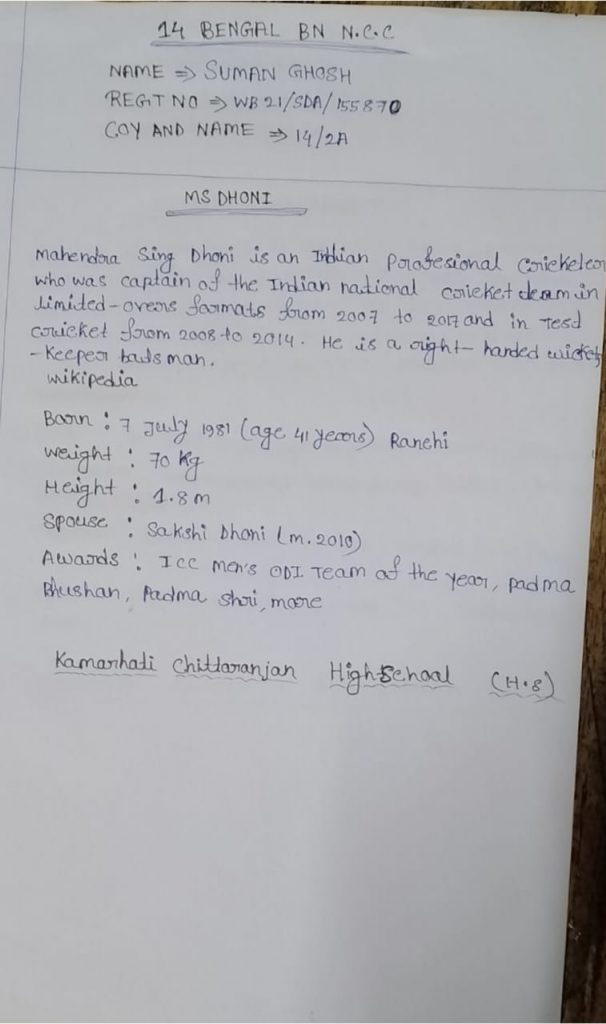 14 BENGAL BN N.C.C
NAME ⇒ SUMAN GHOSH
REGT NO ⇒ WB 21/SDA/155870
COY AND NAME ⇒ 14/2A
MS DHONI
Mahendra Sing Dhoni is an Indian Profesional cricketer
who was captain of the Indian national cricket team in
limited-overs formats from 2007 to 2017 and in Test
cricket from 2008 to 2014. He is a right-handed wicket
-Keeper batsman.
wikipedia
Born : 7 July 1981 (age 41 years) Ranchi
weight : 70 kg
Height : 1.8 m
Spouse : Sakshi Dhoni (m.2010)
Awards : ICC men's ODI Team of the year, padma
Bhushan, Padma shri, more
Kamarhati Chittaranjan High School (H.S)